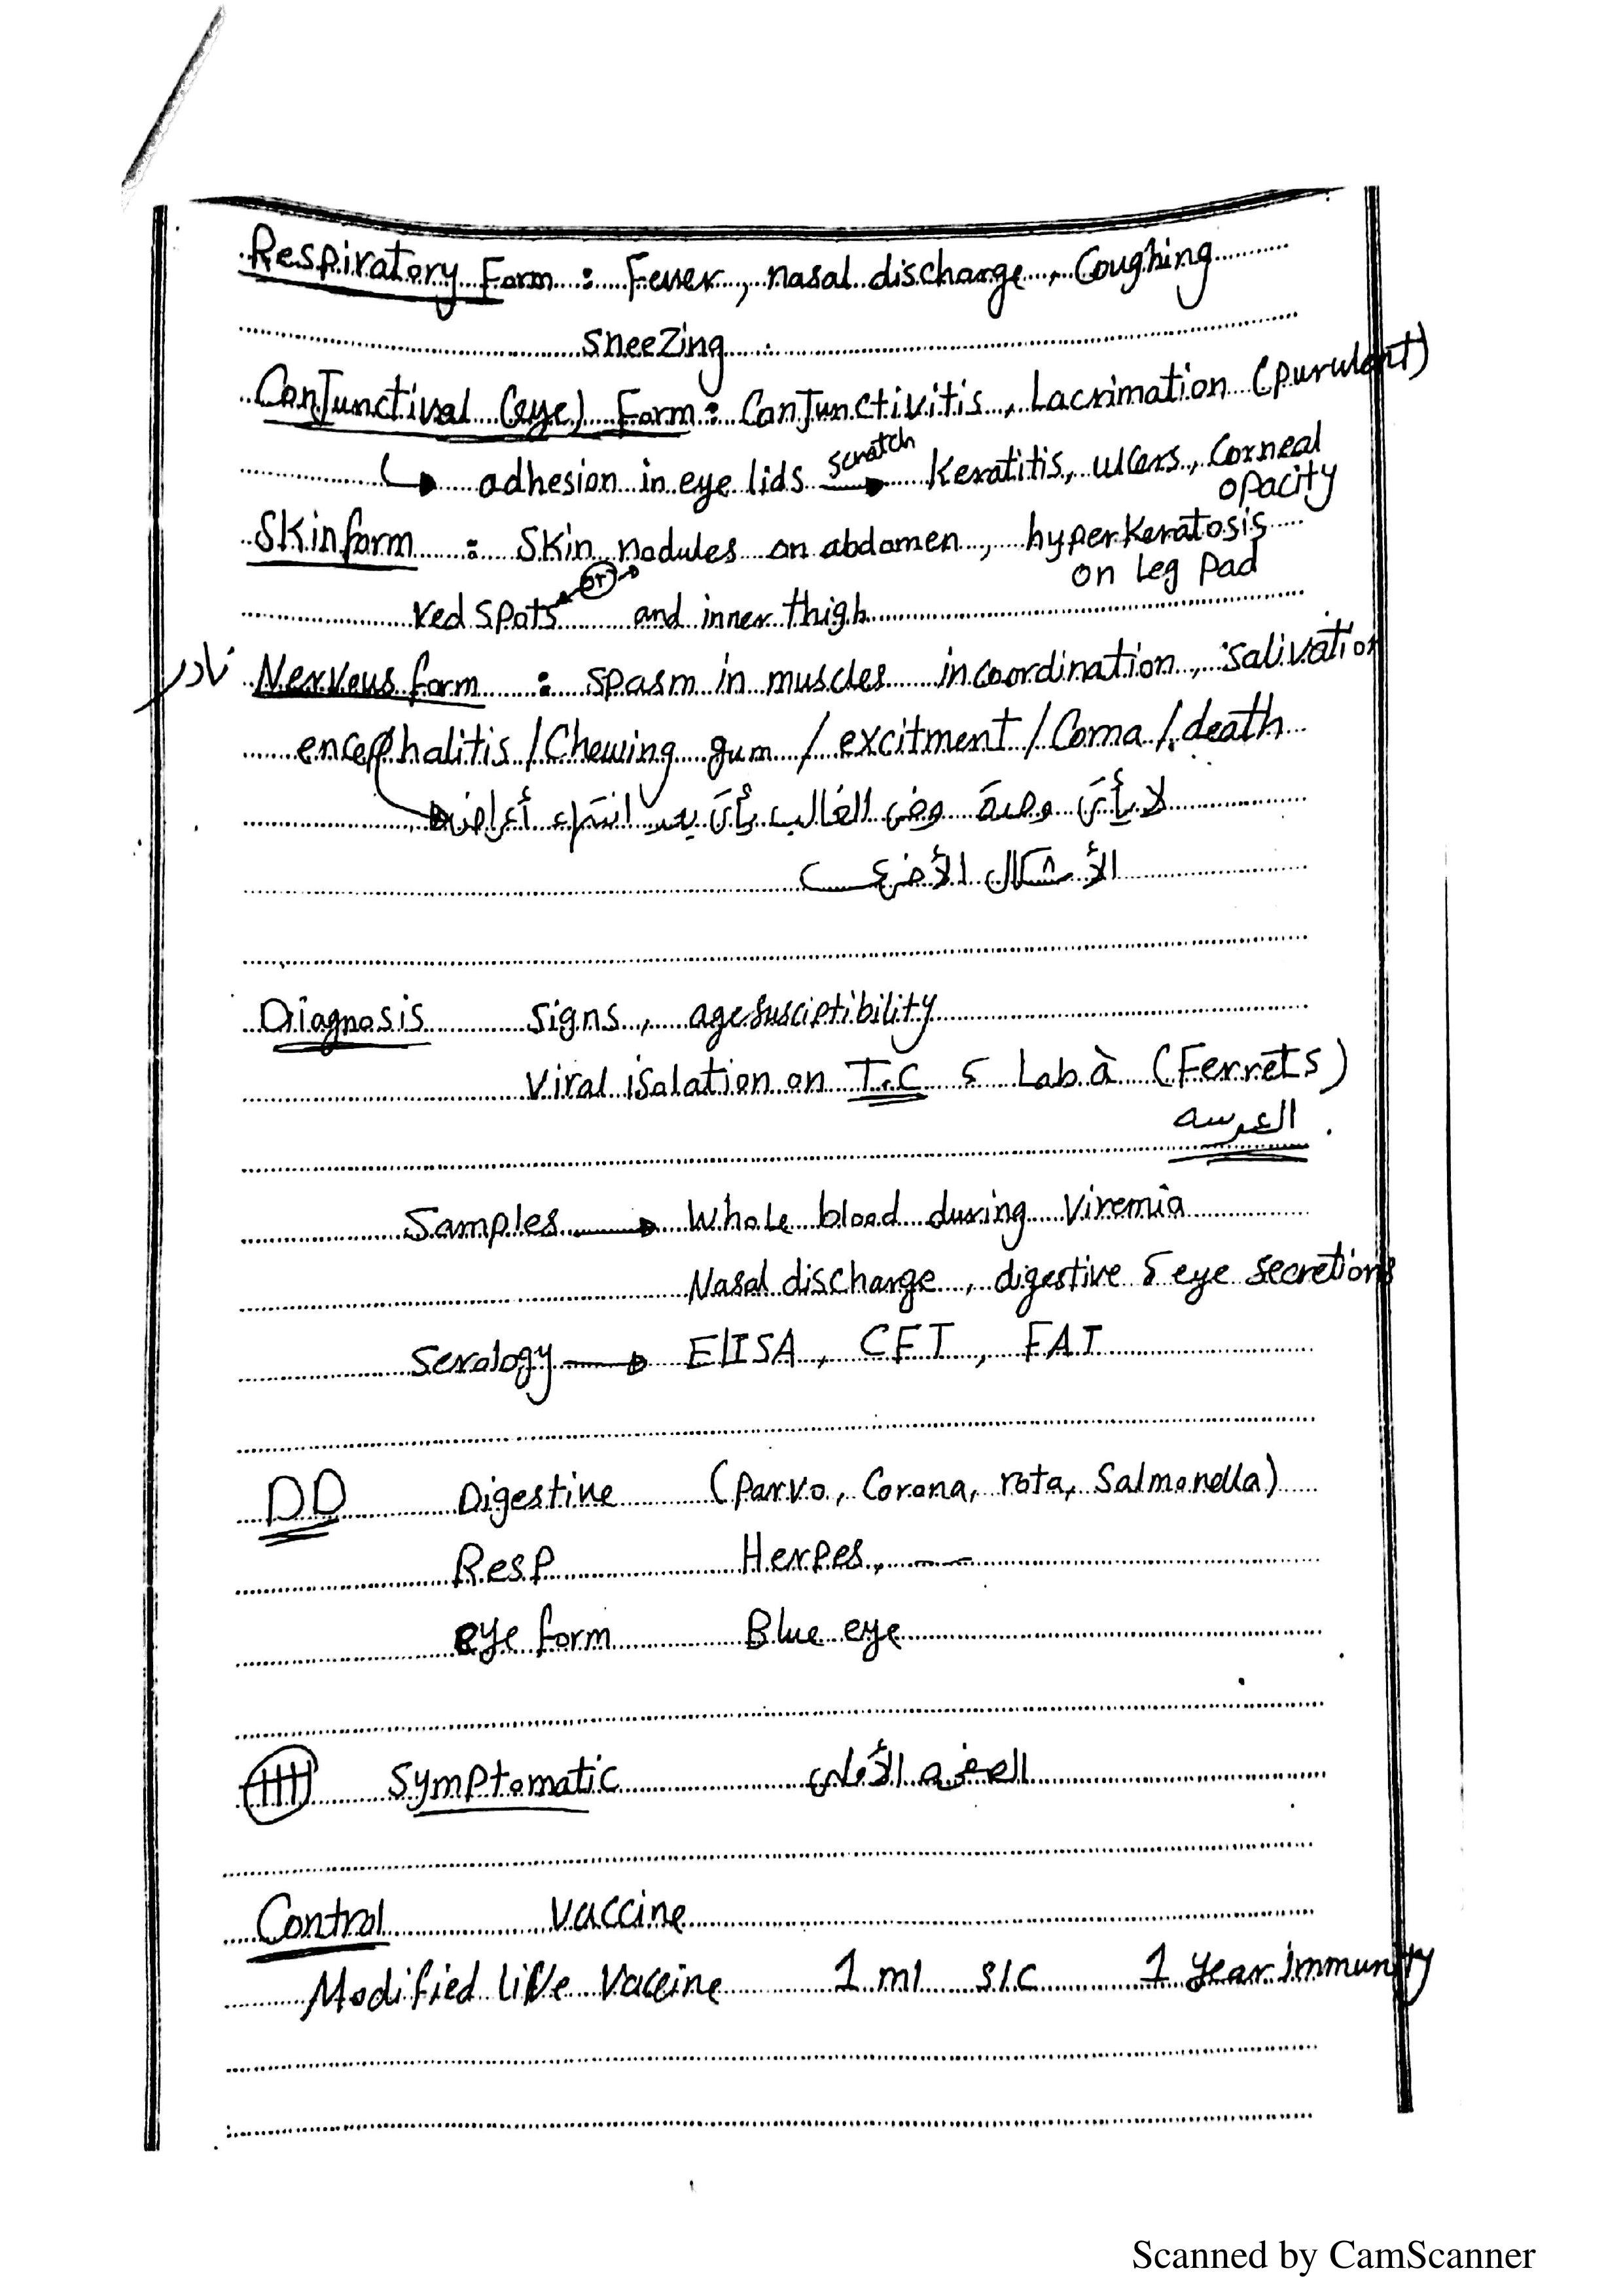 Respiratory Form : Fever, nasal discharge, Coughing
sneezing
Conjunctival (eye) Form : Conjunctivitis, Lacrimation (purulent)
↳ adhesion in eye lids scratch → Keratitis, ulcers, Corneal
opacity
Skin form : Skin nodules on abdomen, hyperkeratosis
on Leg Pad
or
red spots and inner thigh
نادر Nervous form : spasm in muscles incoordination, salivation
encephalitis / Chewing gum / excitment / Coma / death
لا يأتى وفى الغالب يأتى بعد انتهاء أعراض
الأشكال الأخرى
Diagnosis signs, age susciptibility
Viral isolation on T.C & Lab à (Ferrets)
العرسه
Samples → Whole blood during Viremia
Nasal discharge, digestive & eye secretions
Serology → ElISA, CFT, FAT
DD Digestive (Parvo, Corona, rota, Salmonella)
Resp Herpes, —
eye form Blue eye
Symptomatic
Control Vaccine
Modified live Vaccine 1 ml s/c 1 year immunity
Scanned by CamScanner